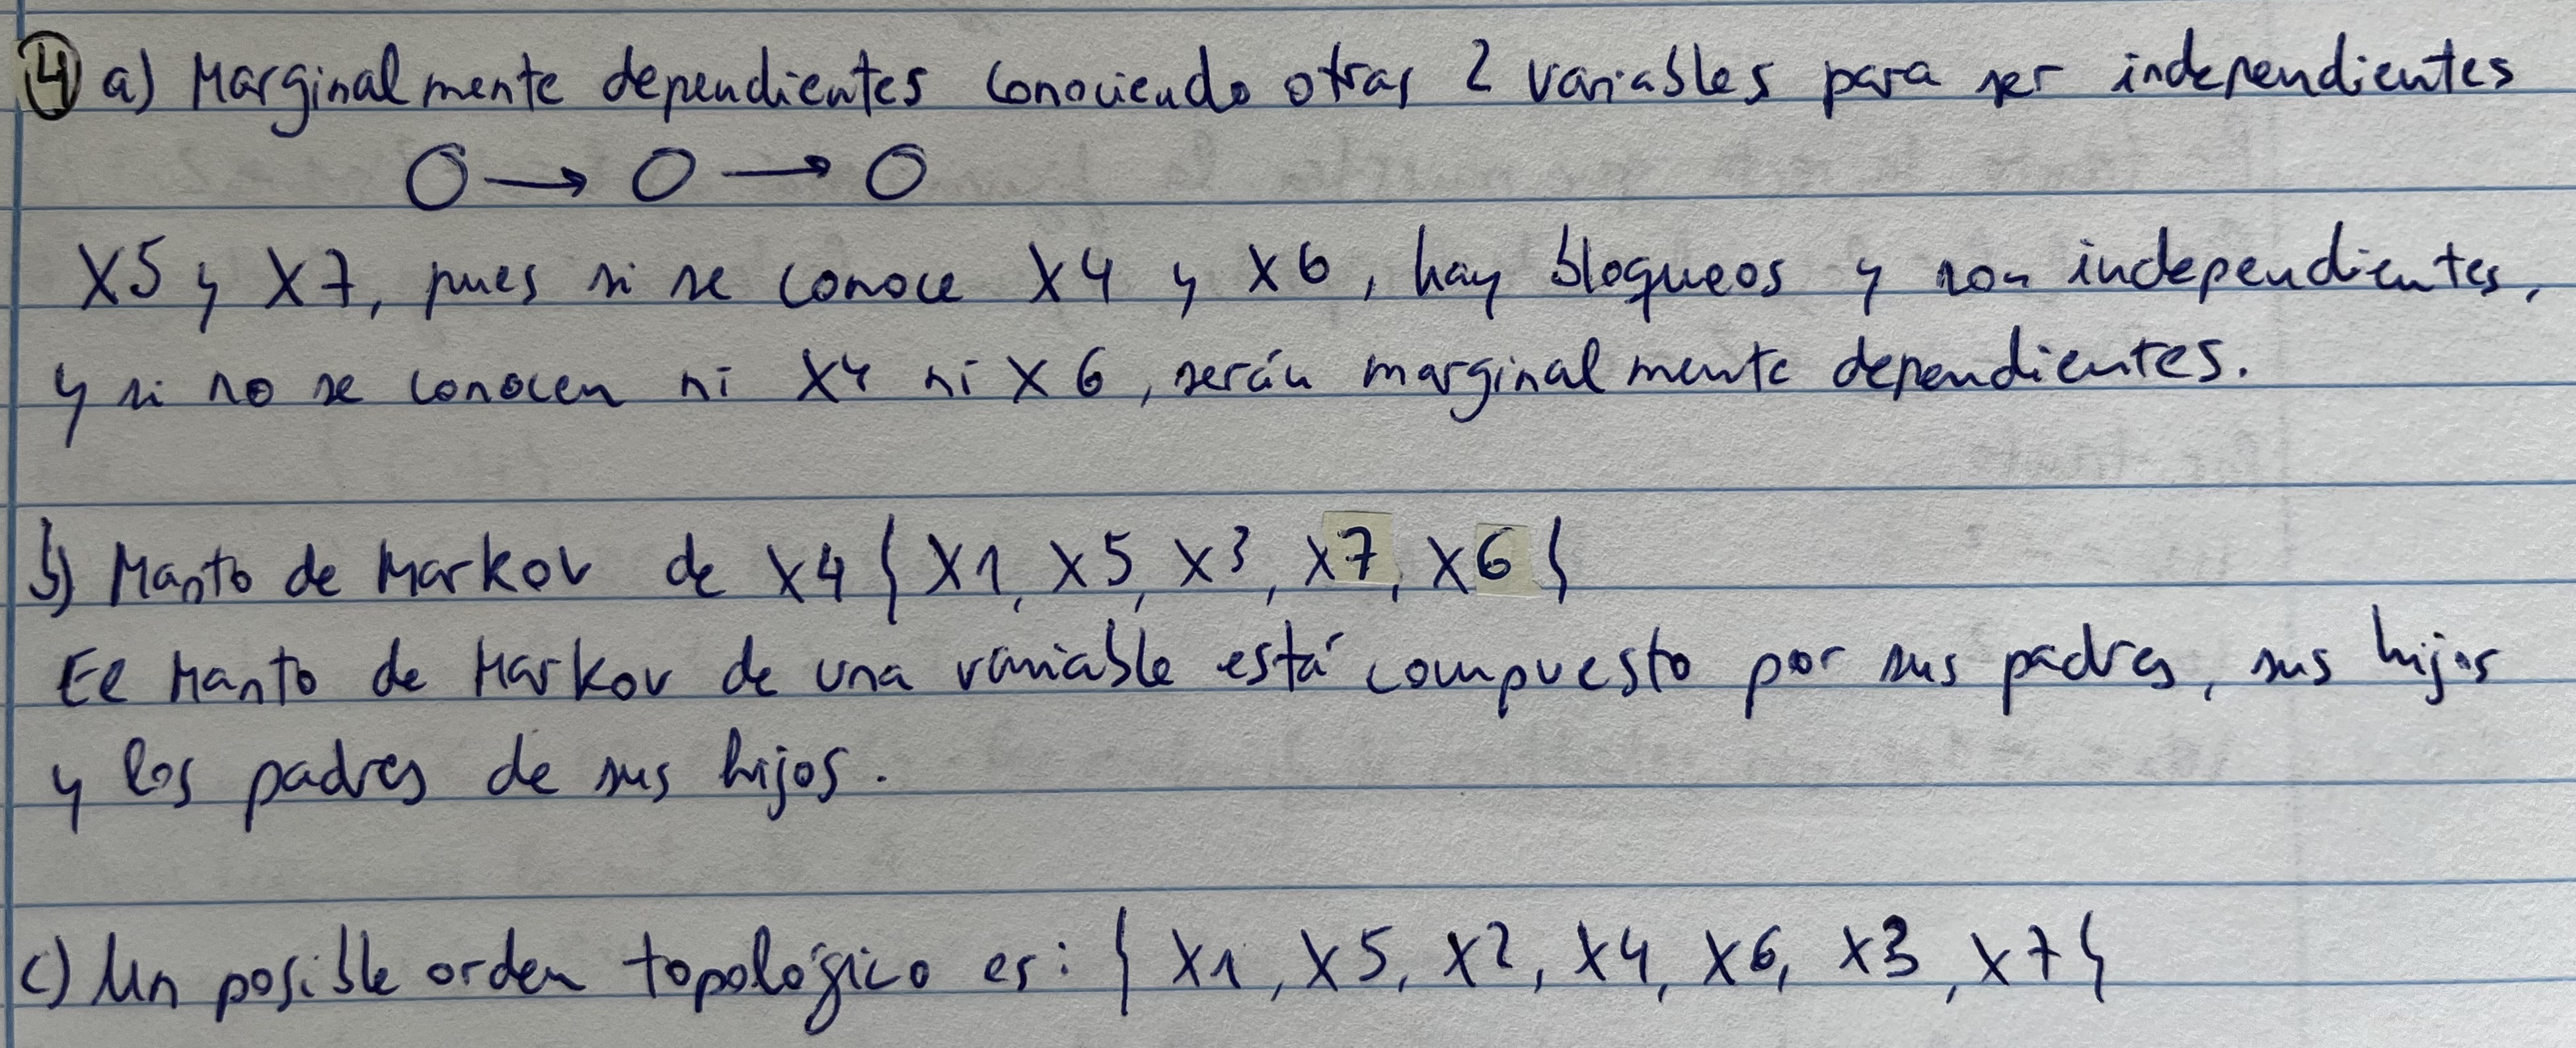 ④ a) Marginalmente dependientes conociendo otras 2 variables para ser independientes
O → O → O
X5 y X7, pues si se conoce X4 y X6, hay bloqueos y son independientes,
y si no se conocen ni X4 ni X6, serán marginalmente dependientes.
b) Manto de Markov de X4 { X1, X5, X3, X7, X6 }
El Manto de Markov de una variable está compuesto por sus padres, sus hijos
y los padres de sus hijos.
c) Un posible orden topológico es: { X1, X5, X2, X4, X6, X3, X7 }